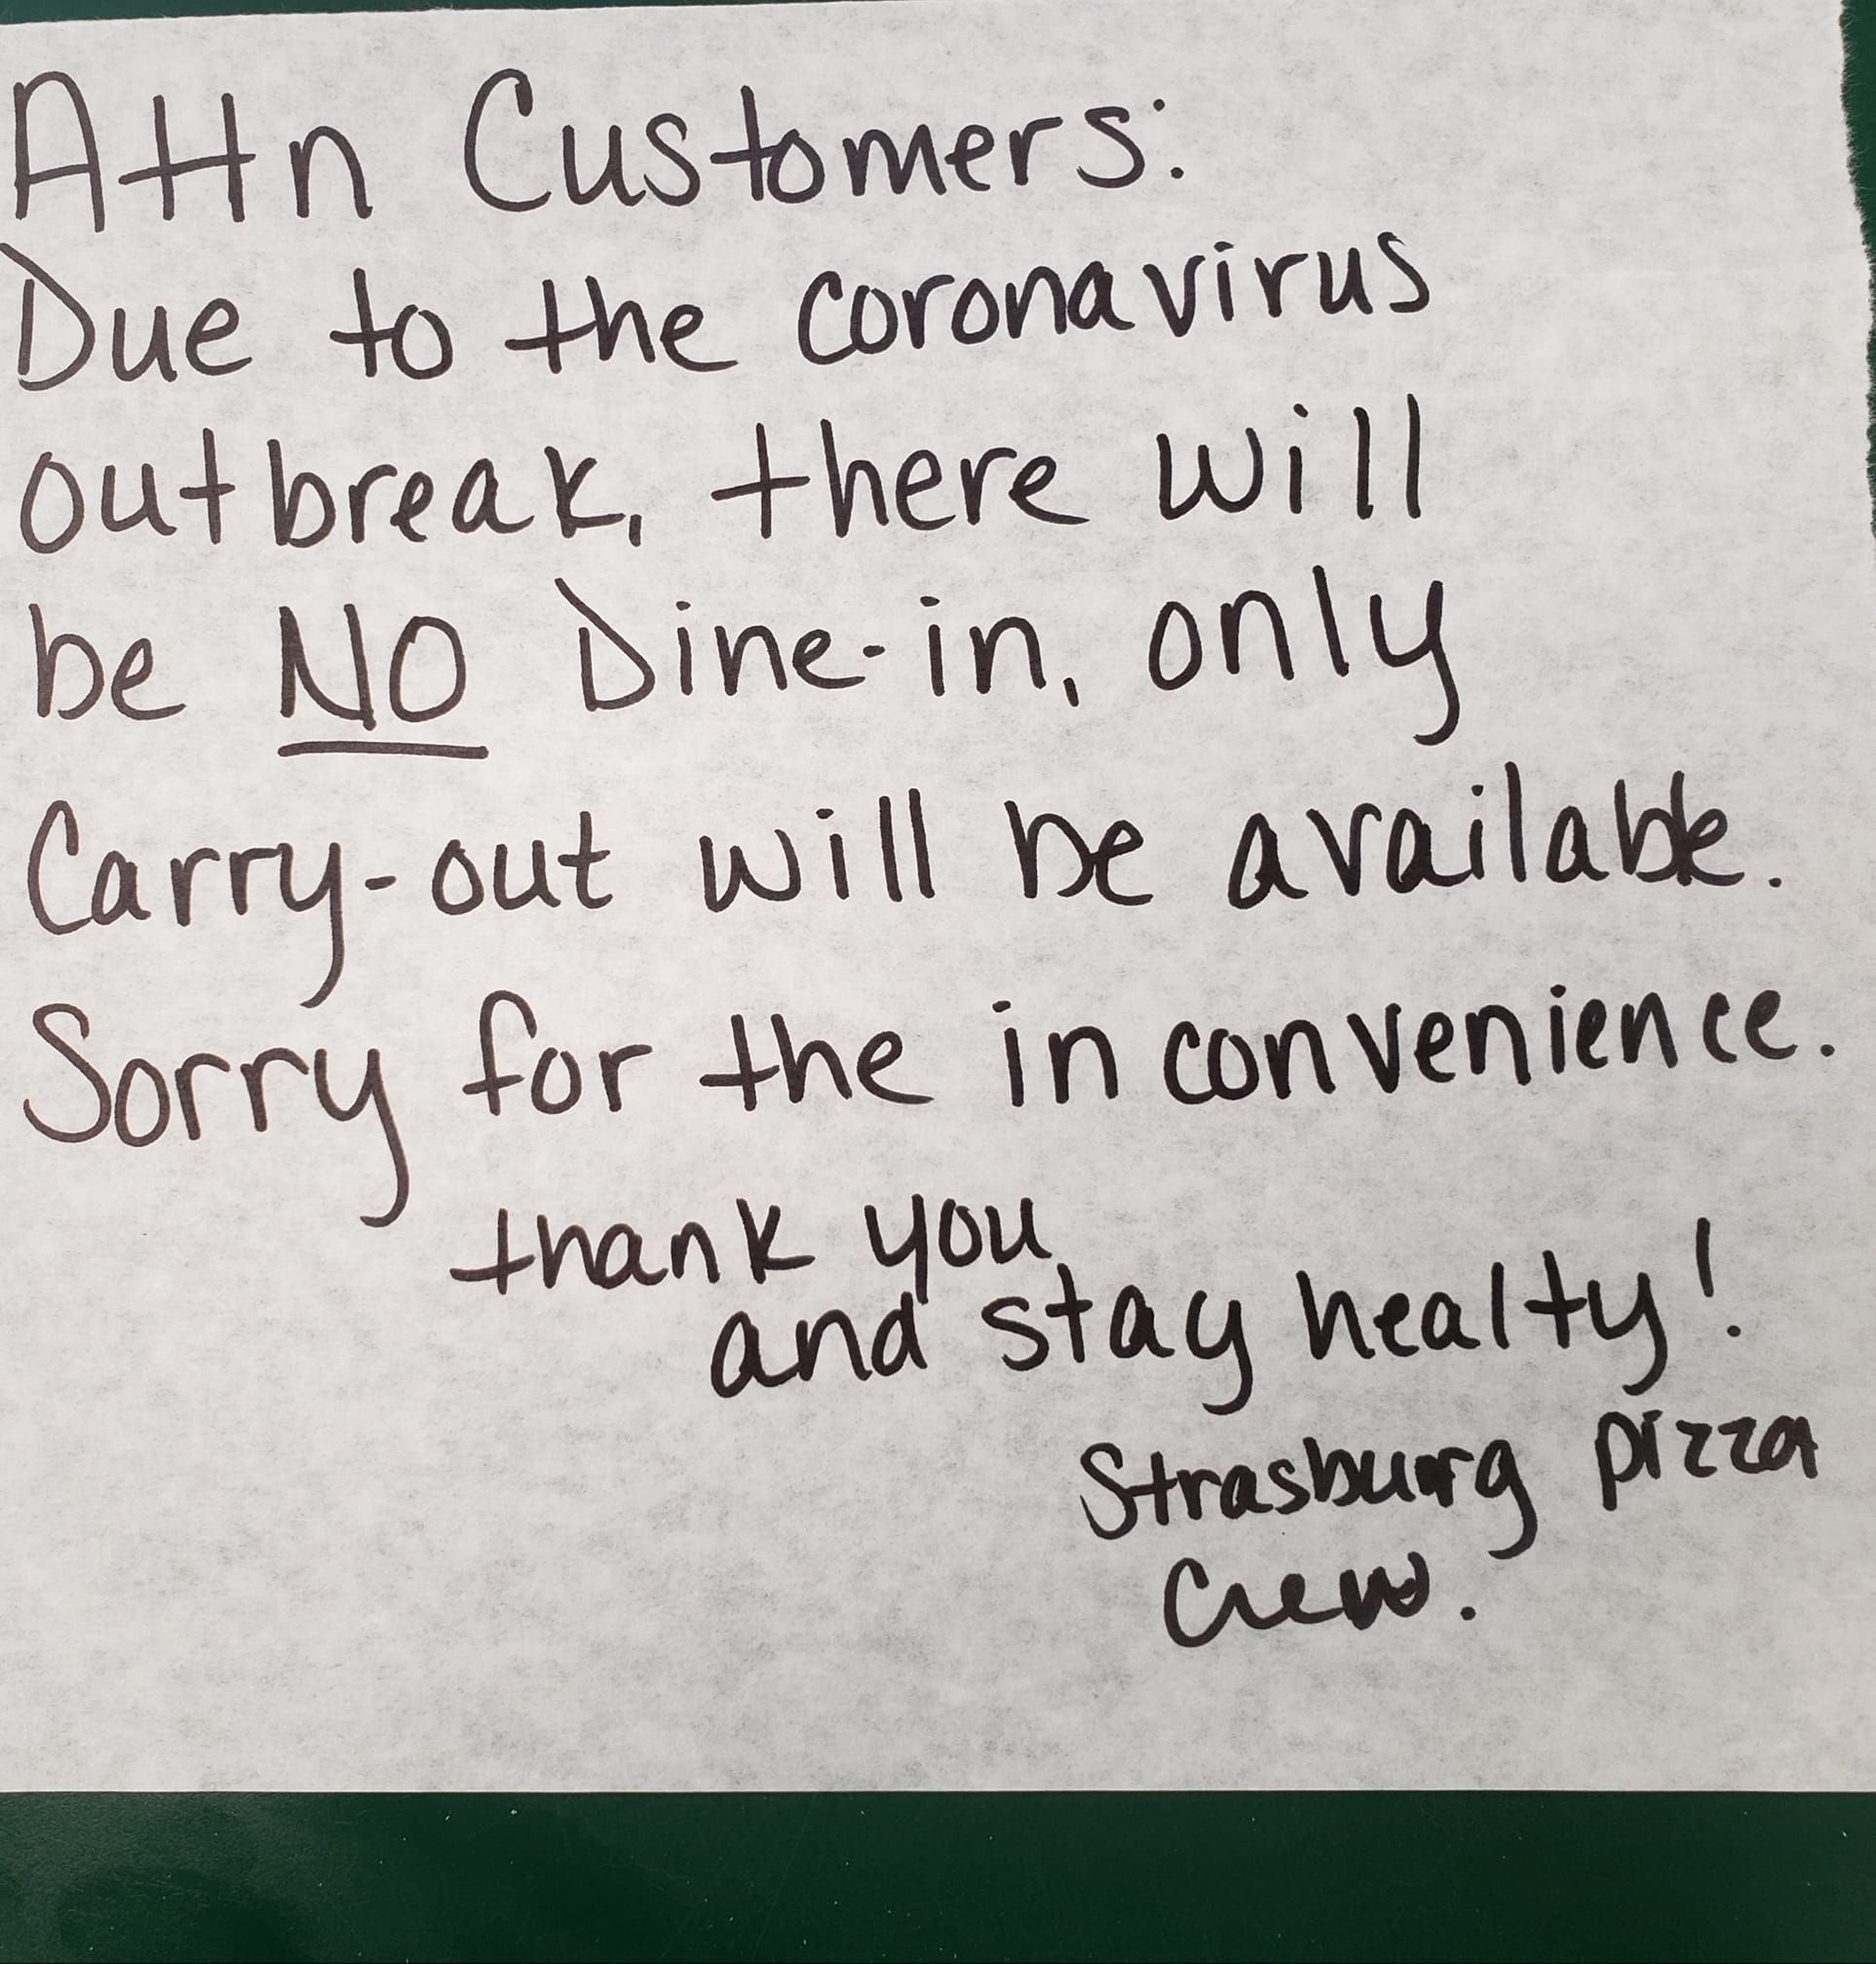 Attn Customers:
Due to the coronavirus
outbreak, there will
be NO Dine-in, only
Carry-out will be available.
Sorry for the inconvenience.
thank you
and stay healty!
Strasburg pizza
Crew.